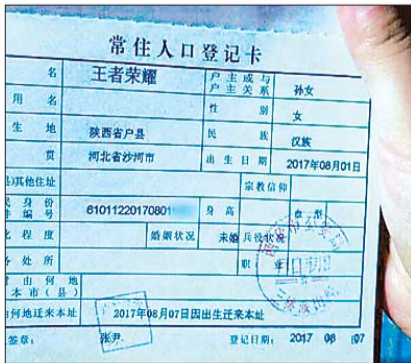 常住人口登记卡
名 王者荣耀 户主或与户主关系 孙女
用名 性别 女
生地 陕西省户县 民族 汉族
贯 河北省沙河市 出生日期 2017年08月01日
其他住址 宗教信仰
身份 编号 61011220170801 身高 血型
程度 婚姻状况 未婚 兵役状况
处所 职业
由何地 本市(县)
何地迁来本址 2017年08月07日因出生迁来本址
签章: 张尹 登记日期: 2017 08 07